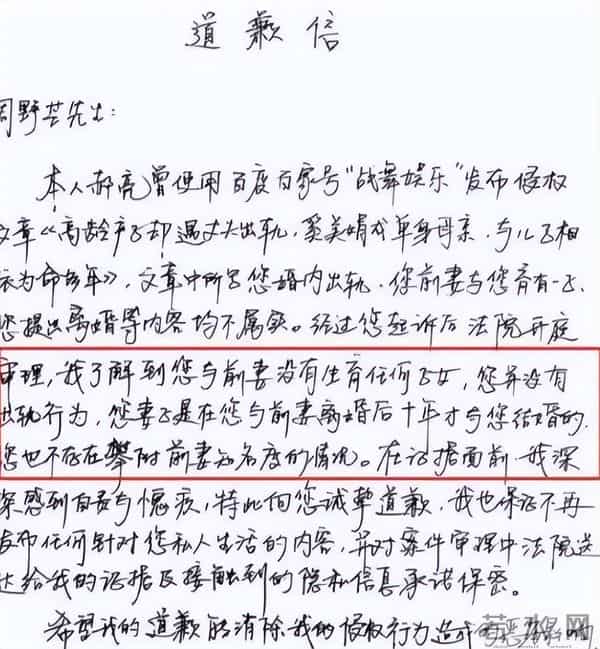 道歉信
周野芒先生：
本人郝亮曾使用百度百家号"战舞娱乐"发布侵权
文章《高龄产子却遇丈夫出轨，奚美娟成单身母亲，与儿子相
依为命多年》，文章中所写您婚内出轨、您前妻与您育有一子、
您提出离婚等内容均不属实。经过您起诉后法院开庭
审理，我了解到您与前妻没有生育任何子女，您并没有
出轨行为，您妻子是在您与前妻离婚后十年才与您结婚的，
您也不存在攀附前妻知名度的情况。在证据面前，我深
深感到自责与愧疚，特此向您诚挚道歉，我也保证不再
发布任何针对您私人生活的内容，并对案件审理中法院送
达给我的证据及接触到的隐私信息承诺保密。
希望我的道歉能消除我的侵权行为造成的